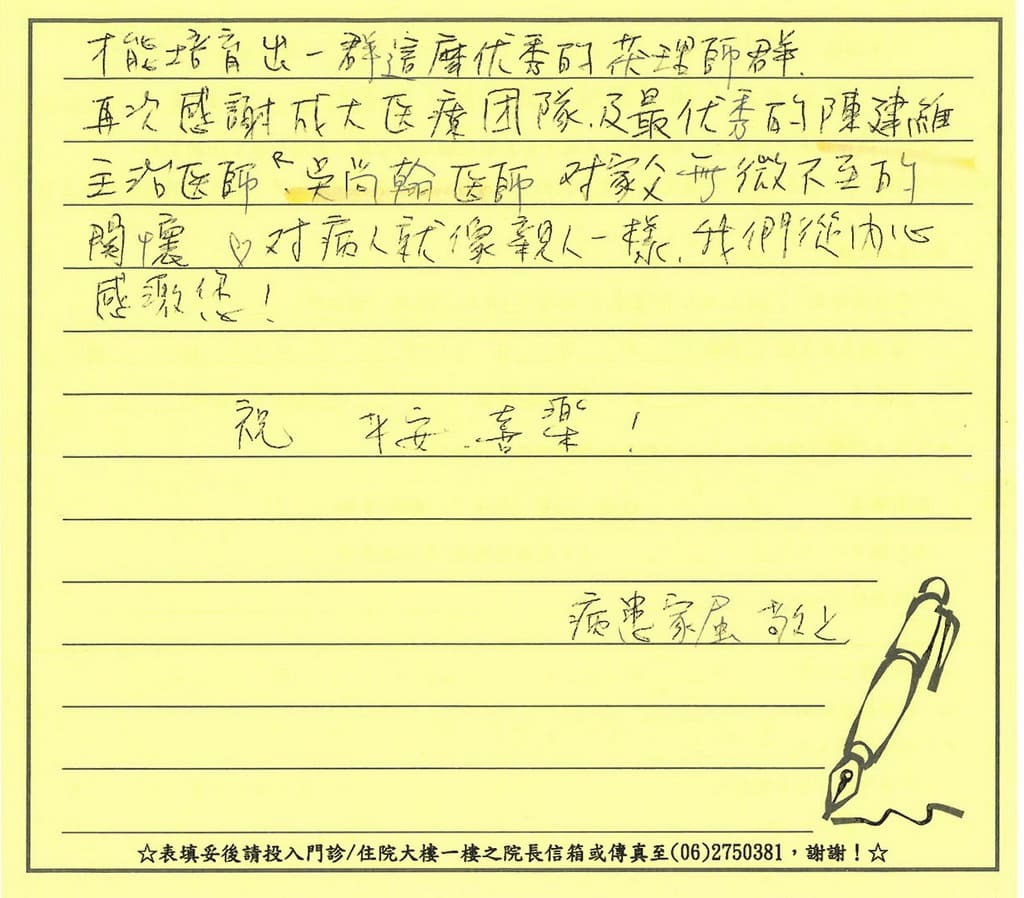 才能培育出一群這麼优秀的䕶理師群.
再次感謝成大医療团隊.及最优秀的陳建維
主治医師R.吳尚翰医師 对家父無微不至的
関懷♡对病人就像親人一樣.我們從內心
感激您!
祝 平安.喜樂!
病患家属 敬上
☆表填妥後請投入門診/住院大樓一樓之院長信箱或傳真至(06)2750381,謝謝!☆